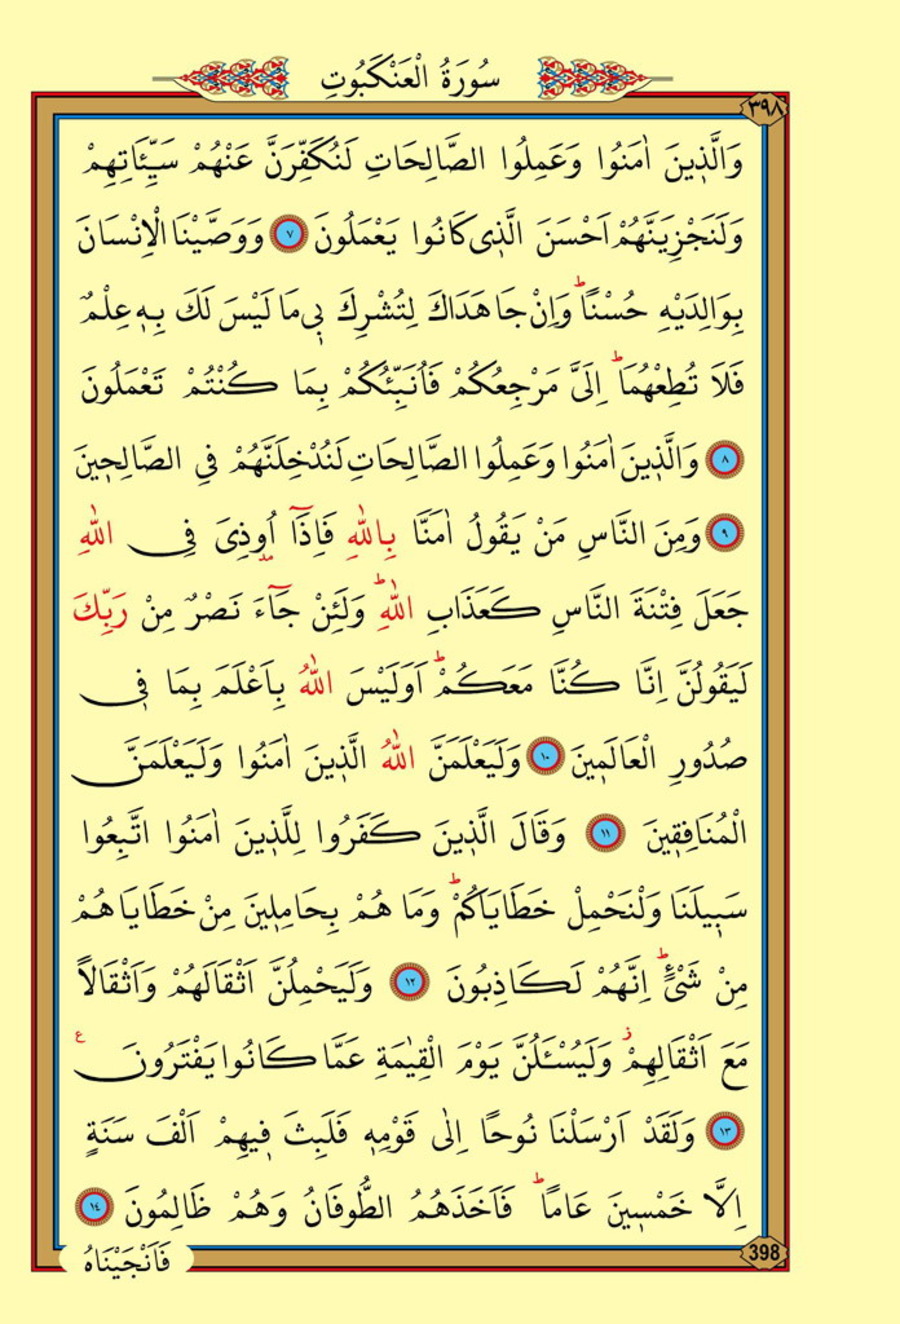 سُورَةُ الْعَنْكَبُوتِ
٣٩٨
وَالَّذ۪ينَ اٰمَنُوا وَعَمِلُوا الصَّالِحَاتِ لَنُكَفِّرَنَّ عَنْهُمْ سَيِّـَٔاتِهِمْ
وَلَنَجْزِيَنَّهُمْ اَحْسَنَ الَّذ۪ى كَانُوا يَعْمَلُونَ ٧ وَوَصَّيْنَا الْاِنْسَانَ
بِوَالِدَيْهِ حُسْنًاۜ وَاِنْ جَاهَدَاكَ لِتُشْرِكَ ب۪ى مَا لَيْسَ لَكَ بِه۪ عِلْمٌ
فَلَا تُطِعْهُمَاۜ اِلَىَّ مَرْجِعُكُمْ فَاُنَبِّئُكُمْ بِمَا كُنْتُمْ تَعْمَلُونَ
٨ وَالَّذ۪ينَ اٰمَنُوا وَعَمِلُوا الصَّالِحَاتِ لَنُدْخِلَنَّهُمْ فِى الصَّالِح۪ينَ
٩ وَمِنَ النَّاسِ مَنْ يَقُولُ اٰمَنَّا بِاللّٰهِ فَاِذَٓا اُو۫ذِىَ فِى اللّٰهِ
جَعَلَ فِتْنَةَ النَّاسِ كَعَذَابِ اللّٰهِۜ وَلَئِنْ جَٓاءَ نَصْرٌ مِنْ رَبِّكَ
لَيَقُولُنَّ اِنَّا كُنَّا مَعَكُمْۜ اَوَلَيْسَ اللّٰهُ بِاَعْلَمَ بِمَا ف۪ى
صُدُورِ الْعَالَم۪ينَ ١٠ وَلَيَعْلَمَنَّ اللّٰهُ الَّذ۪ينَ اٰمَنُوا وَلَيَعْلَمَنَّ
الْمُنَافِق۪ينَ ١١ وَقَالَ الَّذ۪ينَ كَفَرُوا لِلَّذ۪ينَ اٰمَنُوا اتَّبِعُوا
سَب۪يلَنَا وَلْنَحْمِلْ خَطَايَاكُمْۜ وَمَا هُمْ بِحَامِل۪ينَ مِنْ خَطَايَاهُمْ
مِنْ شَىْءٍۜ اِنَّهُمْ لَكَاذِبُونَ ١٢ وَلَيَحْمِلُنَّ اَثْقَالَهُمْ وَاَثْقَالًا
مَعَ اَثْقَالِهِمْۘ وَلَيُسْـَٔلُنَّ يَوْمَ الْقِيٰمَةِ عَمَّا كَانُوا يَفْتَرُونَ ع
١٣ وَلَقَدْ اَرْسَلْنَا نُوحًا اِلٰى قَوْمِه۪ فَلَبِثَ ف۪يهِمْ اَلْفَ سَنَةٍ
اِلَّا خَمْس۪ينَ عَامًاۜ فَاَخَذَهُمُ الطُّوفَانُ وَهُمْ ظَالِمُونَ ١٤
فَاَنْجَيْنَاهُ
398